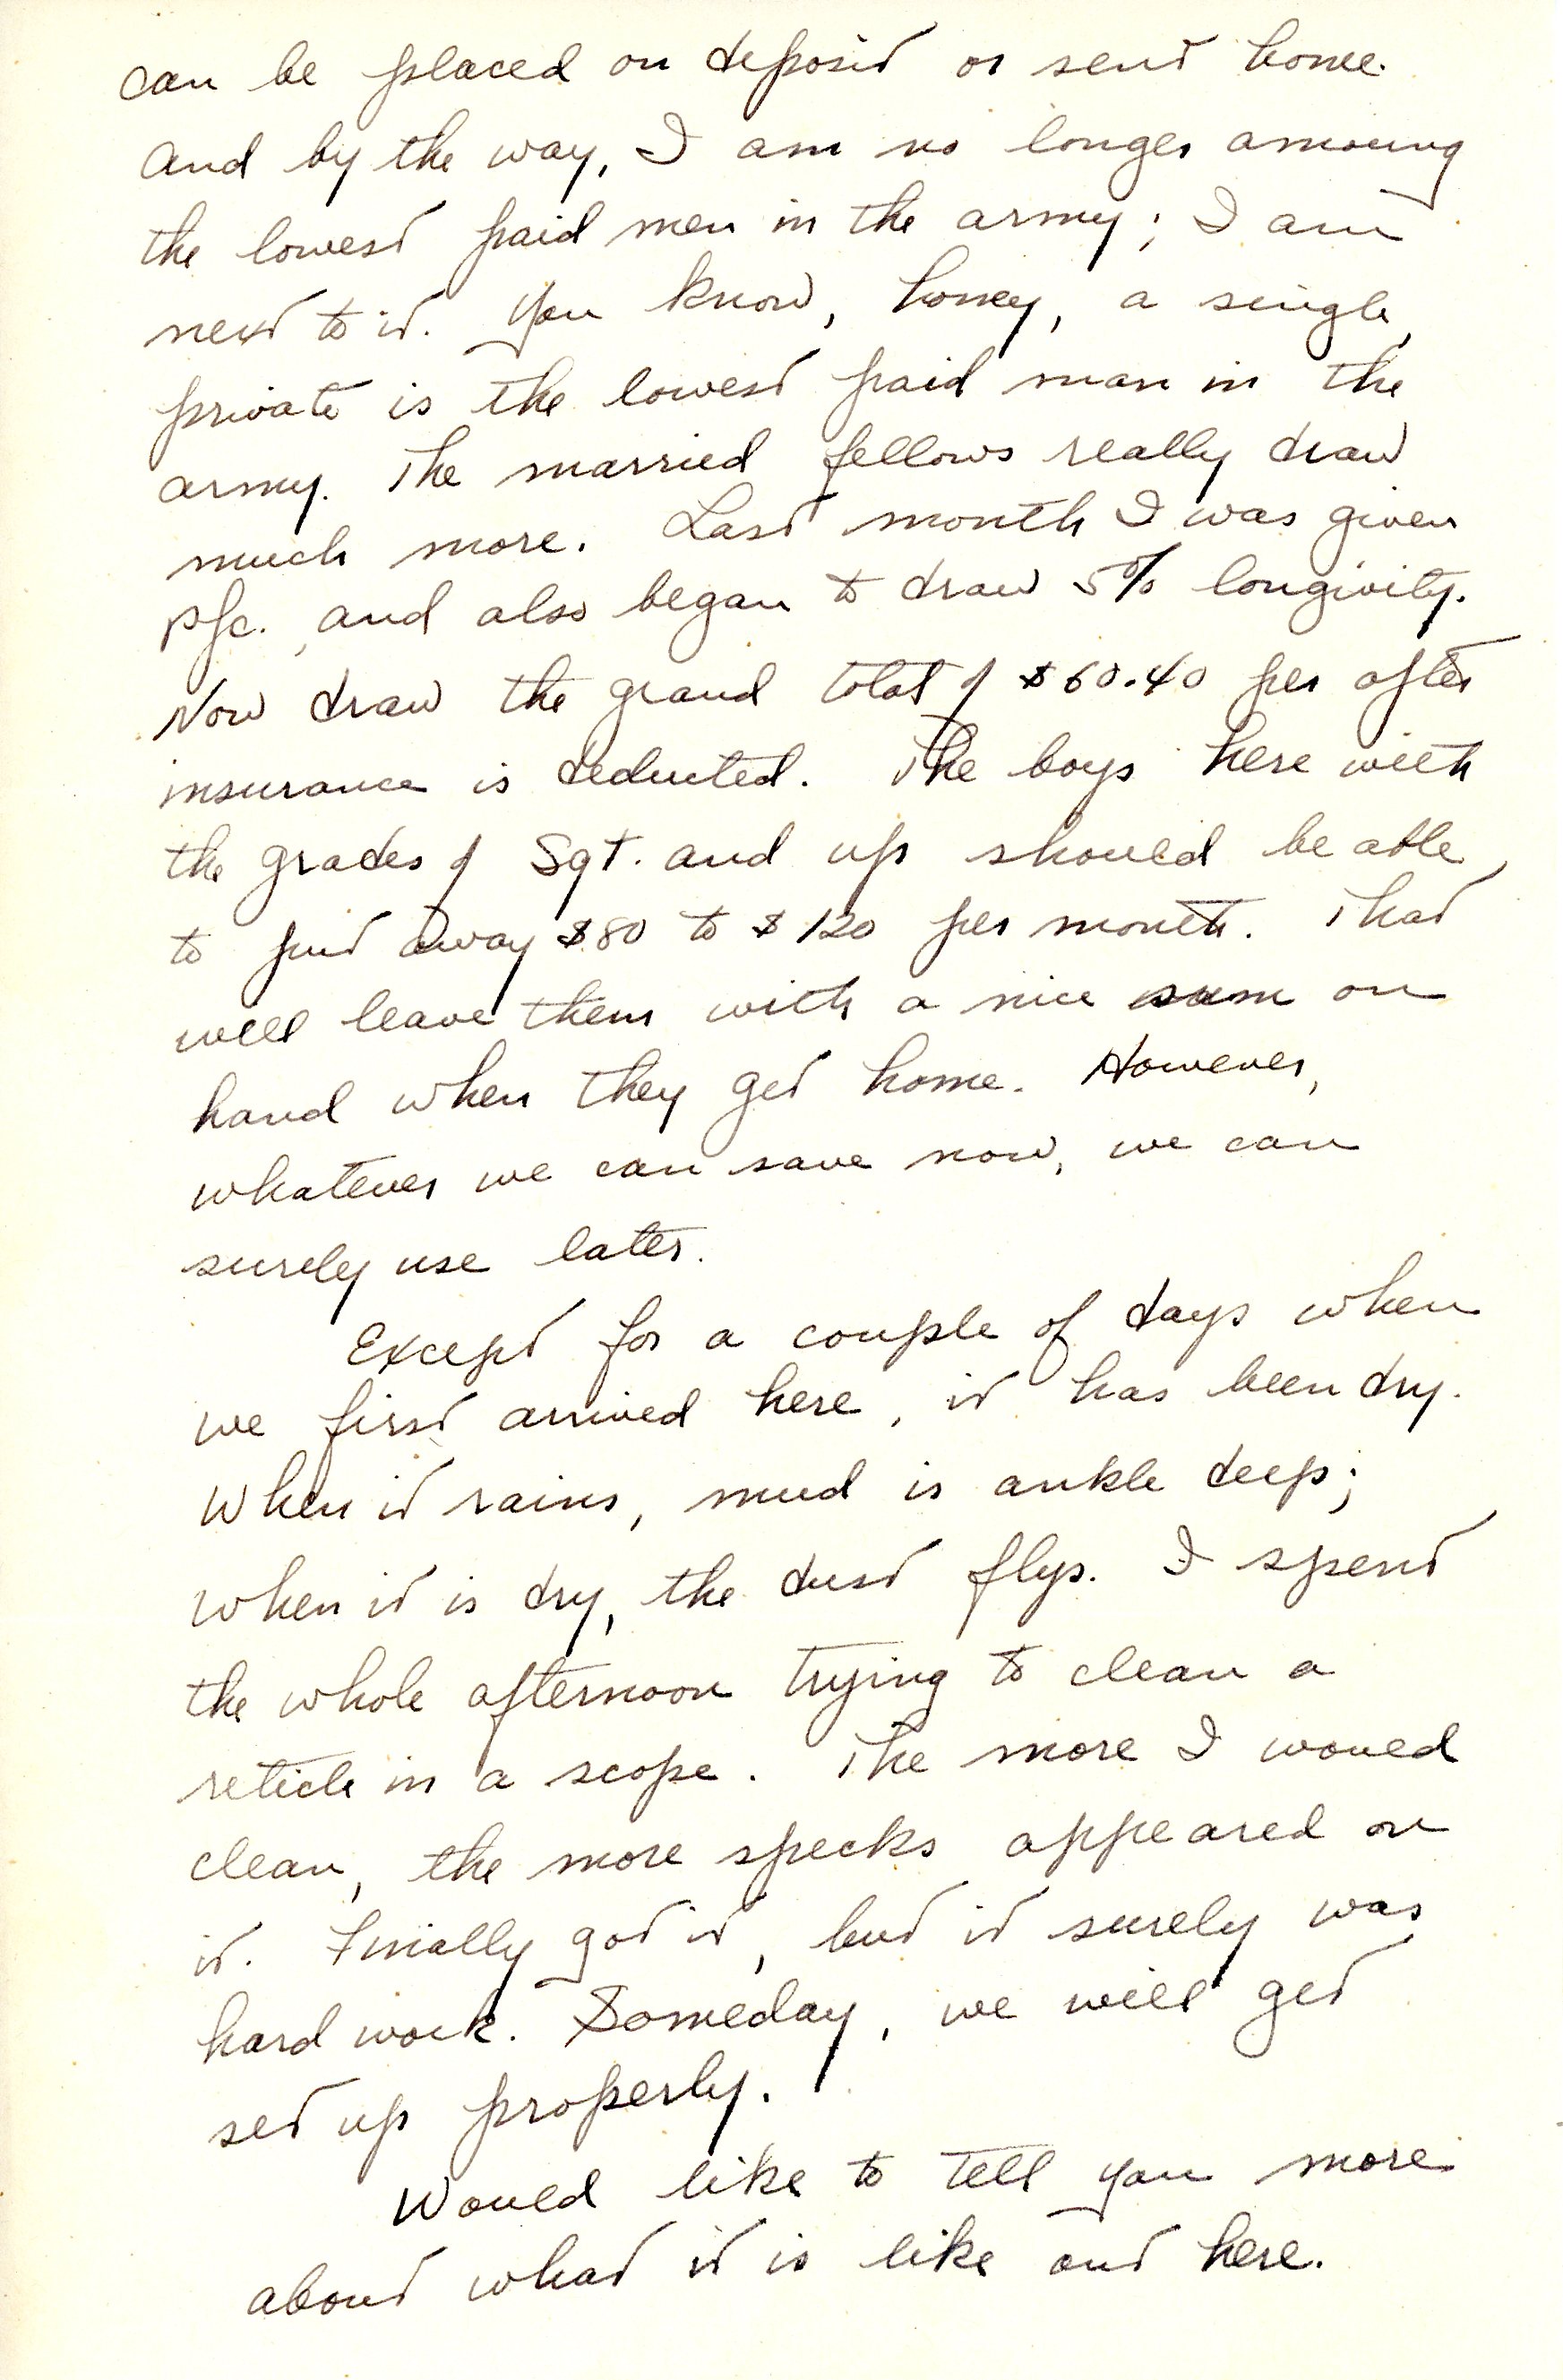 can be placed on deposit or sent home.
And by the way, I am no longer amoung
the lowest paid men in the army; I am
next to it. You know, honey, a single,
private is the lowest paid man in the
army. The married fellows really draw
much more. Last month I was given
pfc. and also began to draw 5% longivity.
Now draw the grand total of $60.40 per after
insurance is deducted. The boys here with
the grades of Sgt. and up should be able
to put away $80 to $120 per month. That
will leave them with a nice sum on
hand when they get home. However,
whatever we can save now, we can
surely use later.
Except for a couple of days when
we first arrived here, it has been dry.
When it rains, mud is ankle deep;
when it is dry, the dust flys. I spent
the whole afternoon trying to clean a
reticle in a scope. The more I would
clean, the more specks appeared on
it. Finally got it, but it surely was
hard work. Someday, we will get
set up properly.
Would like to tell you more
about what it is like out here.